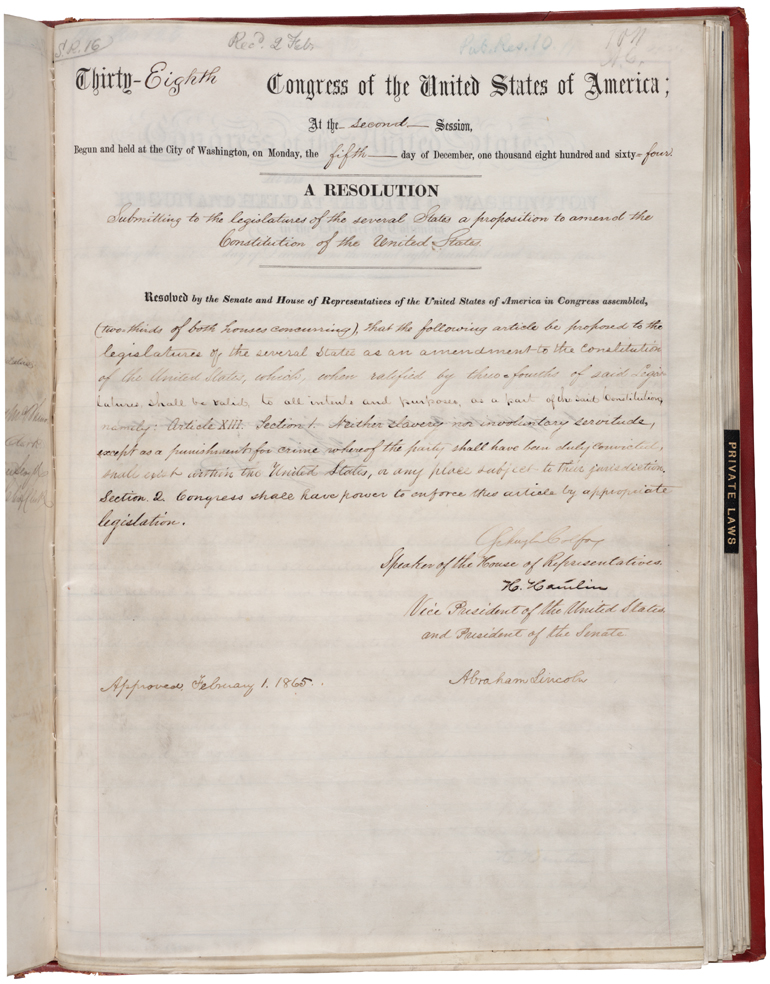 S.R. 16
Rec'd. 2 Feby
Pub. Res. 10
Thirty-Eighth Congress of the United States of America;
At the second Session,
Begun and held at the City of Washington, on Monday, the fifth day of December, one thousand eight hundred and sixty-four.
A RESOLUTION
Submitting to the legislatures of the several States a proposition to amend the
Constitution of the United States.
Resolved by the Senate and House of Representatives of the United States of America in Congress assembled,
(two-thirds of both houses concurring), That the following article be proposed to the
legislatures of the several States as an amendment to the Constitution
of the United States, which, when ratified by three-fourths of said Legis-
latures, shall be valid, to all intents and purposes, as a part of the said Constitution,
namely: Article XIII. Section 1. Neither slavery nor involuntary servitude,
except as a punishment for crime whereof the party shall have been duly convicted,
shall exist within the United States, or any place subject to their jurisdiction.
Section 2. Congress shall have power to enforce this article by appropriate
legislation.
Schuyler Colfax
Speaker of the House of Representatives.
H. Hamlin
Vice President of the United States
and President of the Senate
Approved, February 1. 1865.
Abraham Lincoln
PRIVATE LAWS